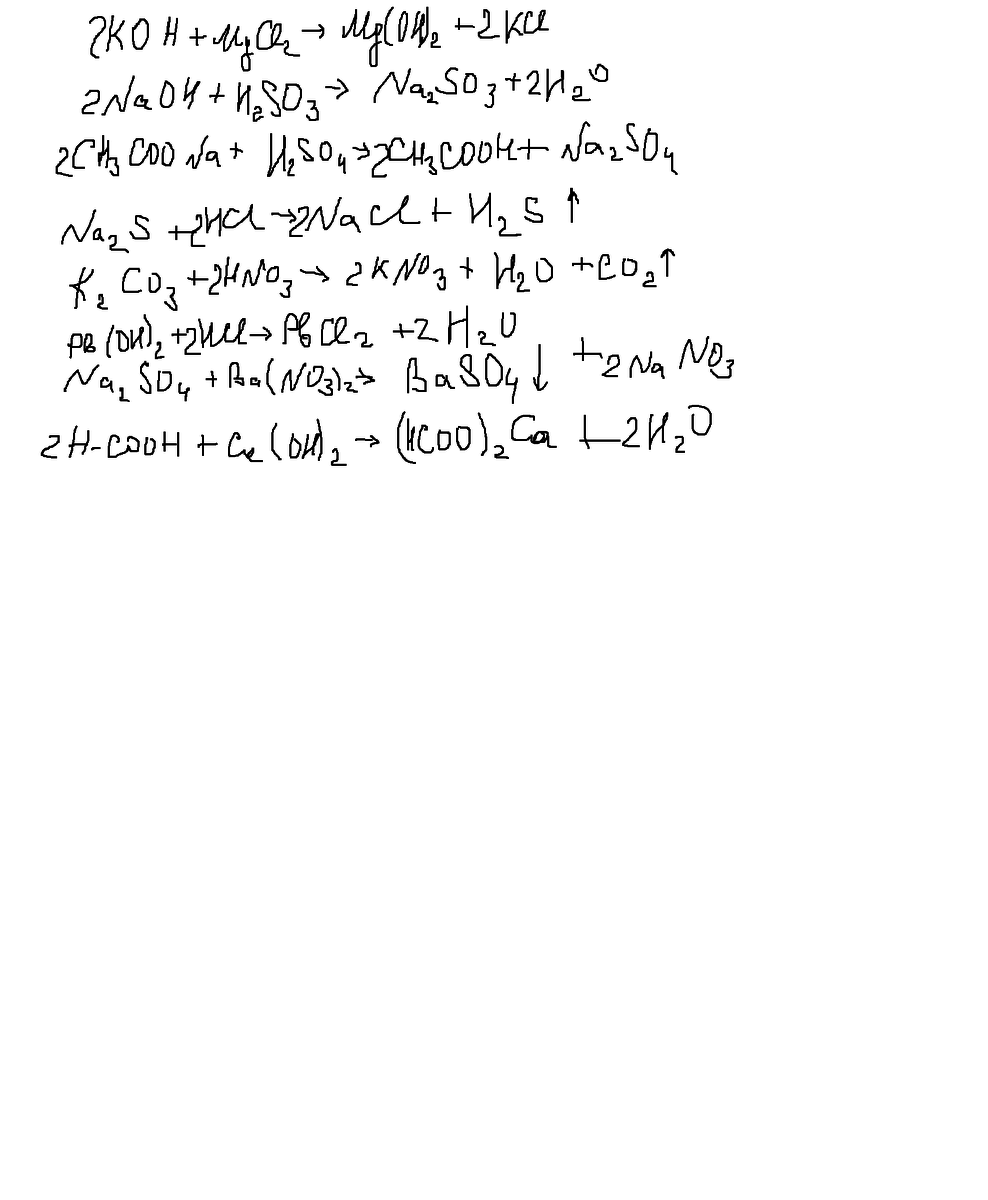 2KOH + MgCl₂ → Mg(OH)₂ + 2KCl
2NaOH + H₂SO₃ → Na₂SO₃ + 2H₂O
2CH₃COONa + H₂SO₄ → 2CH₃COOH + Na₂SO₄
Na₂S + 2HCl → 2NaCl + H₂S ↑
K₂CO₃ + 2HNO₃ → 2KNO₃ + H₂O + CO₂↑
Pb(OH)₂ + 2HCl → PbCl₂ + 2H₂O
Na₂SO₄ + Ba(NO₃)₂ → BaSO₄↓ + 2NaNO₃
2H-COOH + Ca(OH)₂ → (HCOO)₂Ca + 2H₂O